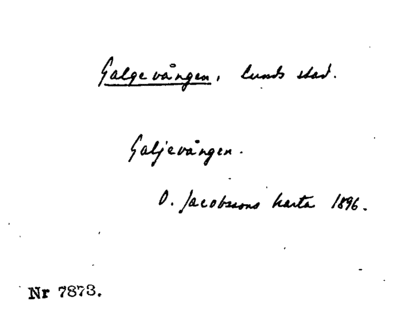 Galgevången, Lunds stad.
Galjevången.
O. Jacobssons karta 1896.
Nr 7873.